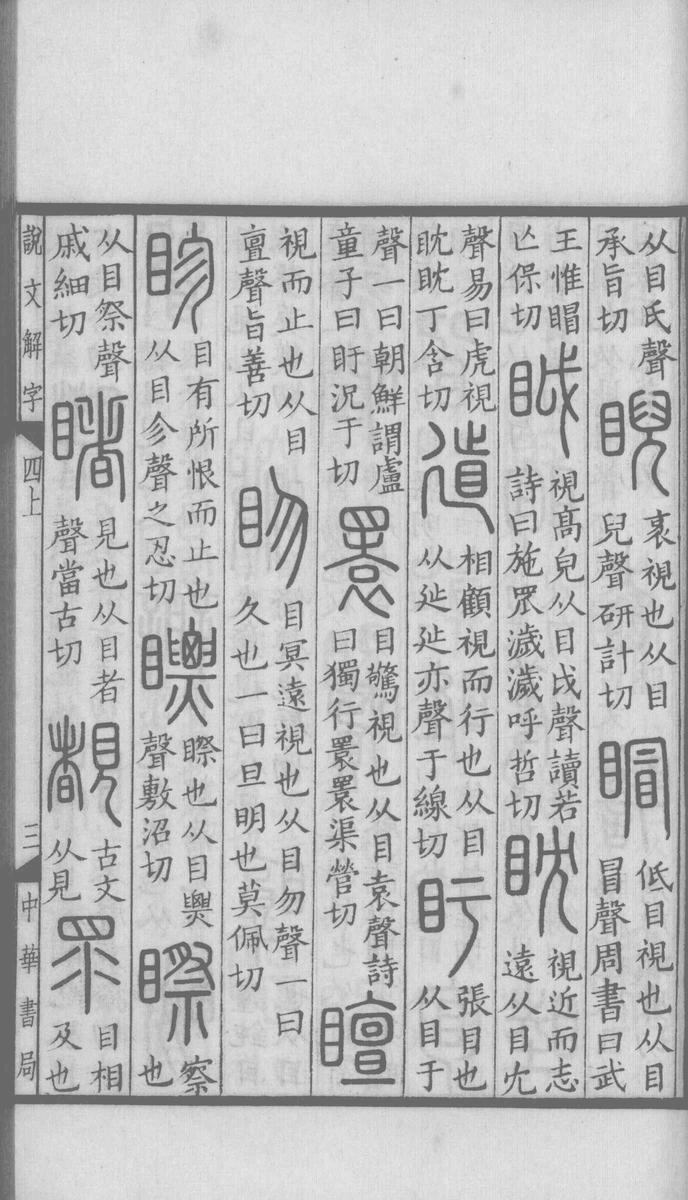 从目氏聲承旨切睨衺視也从目兒聲研計切低目視也从目冒聲周書曰武
王惟亾保切眓視高皃从目戉聲讀若詩曰施罛濊濊呼哲切眈視近而志遠从目冘
聲易曰虎視眈眈丁含切相顧視而行也从目从㢟㢟亦聲于線切盱張目也从目于
聲一曰朝鮮謂盧童子曰盱況于切瞏目驚視也从目袁聲詩曰獨行瞏瞏渠營切䁴
視而止也从目亶聲旨善切䀛目冥遠視也从目勿聲一曰久也一曰旦明也莫佩切
眕目有所恨而止也从目㐱聲之忍切瞟也从目㶾聲敷沼切察也
从目祭聲戚細切睹見也从目者聲當古切覩古文从見眔目相及也
說文解字 四上 三 中華書局